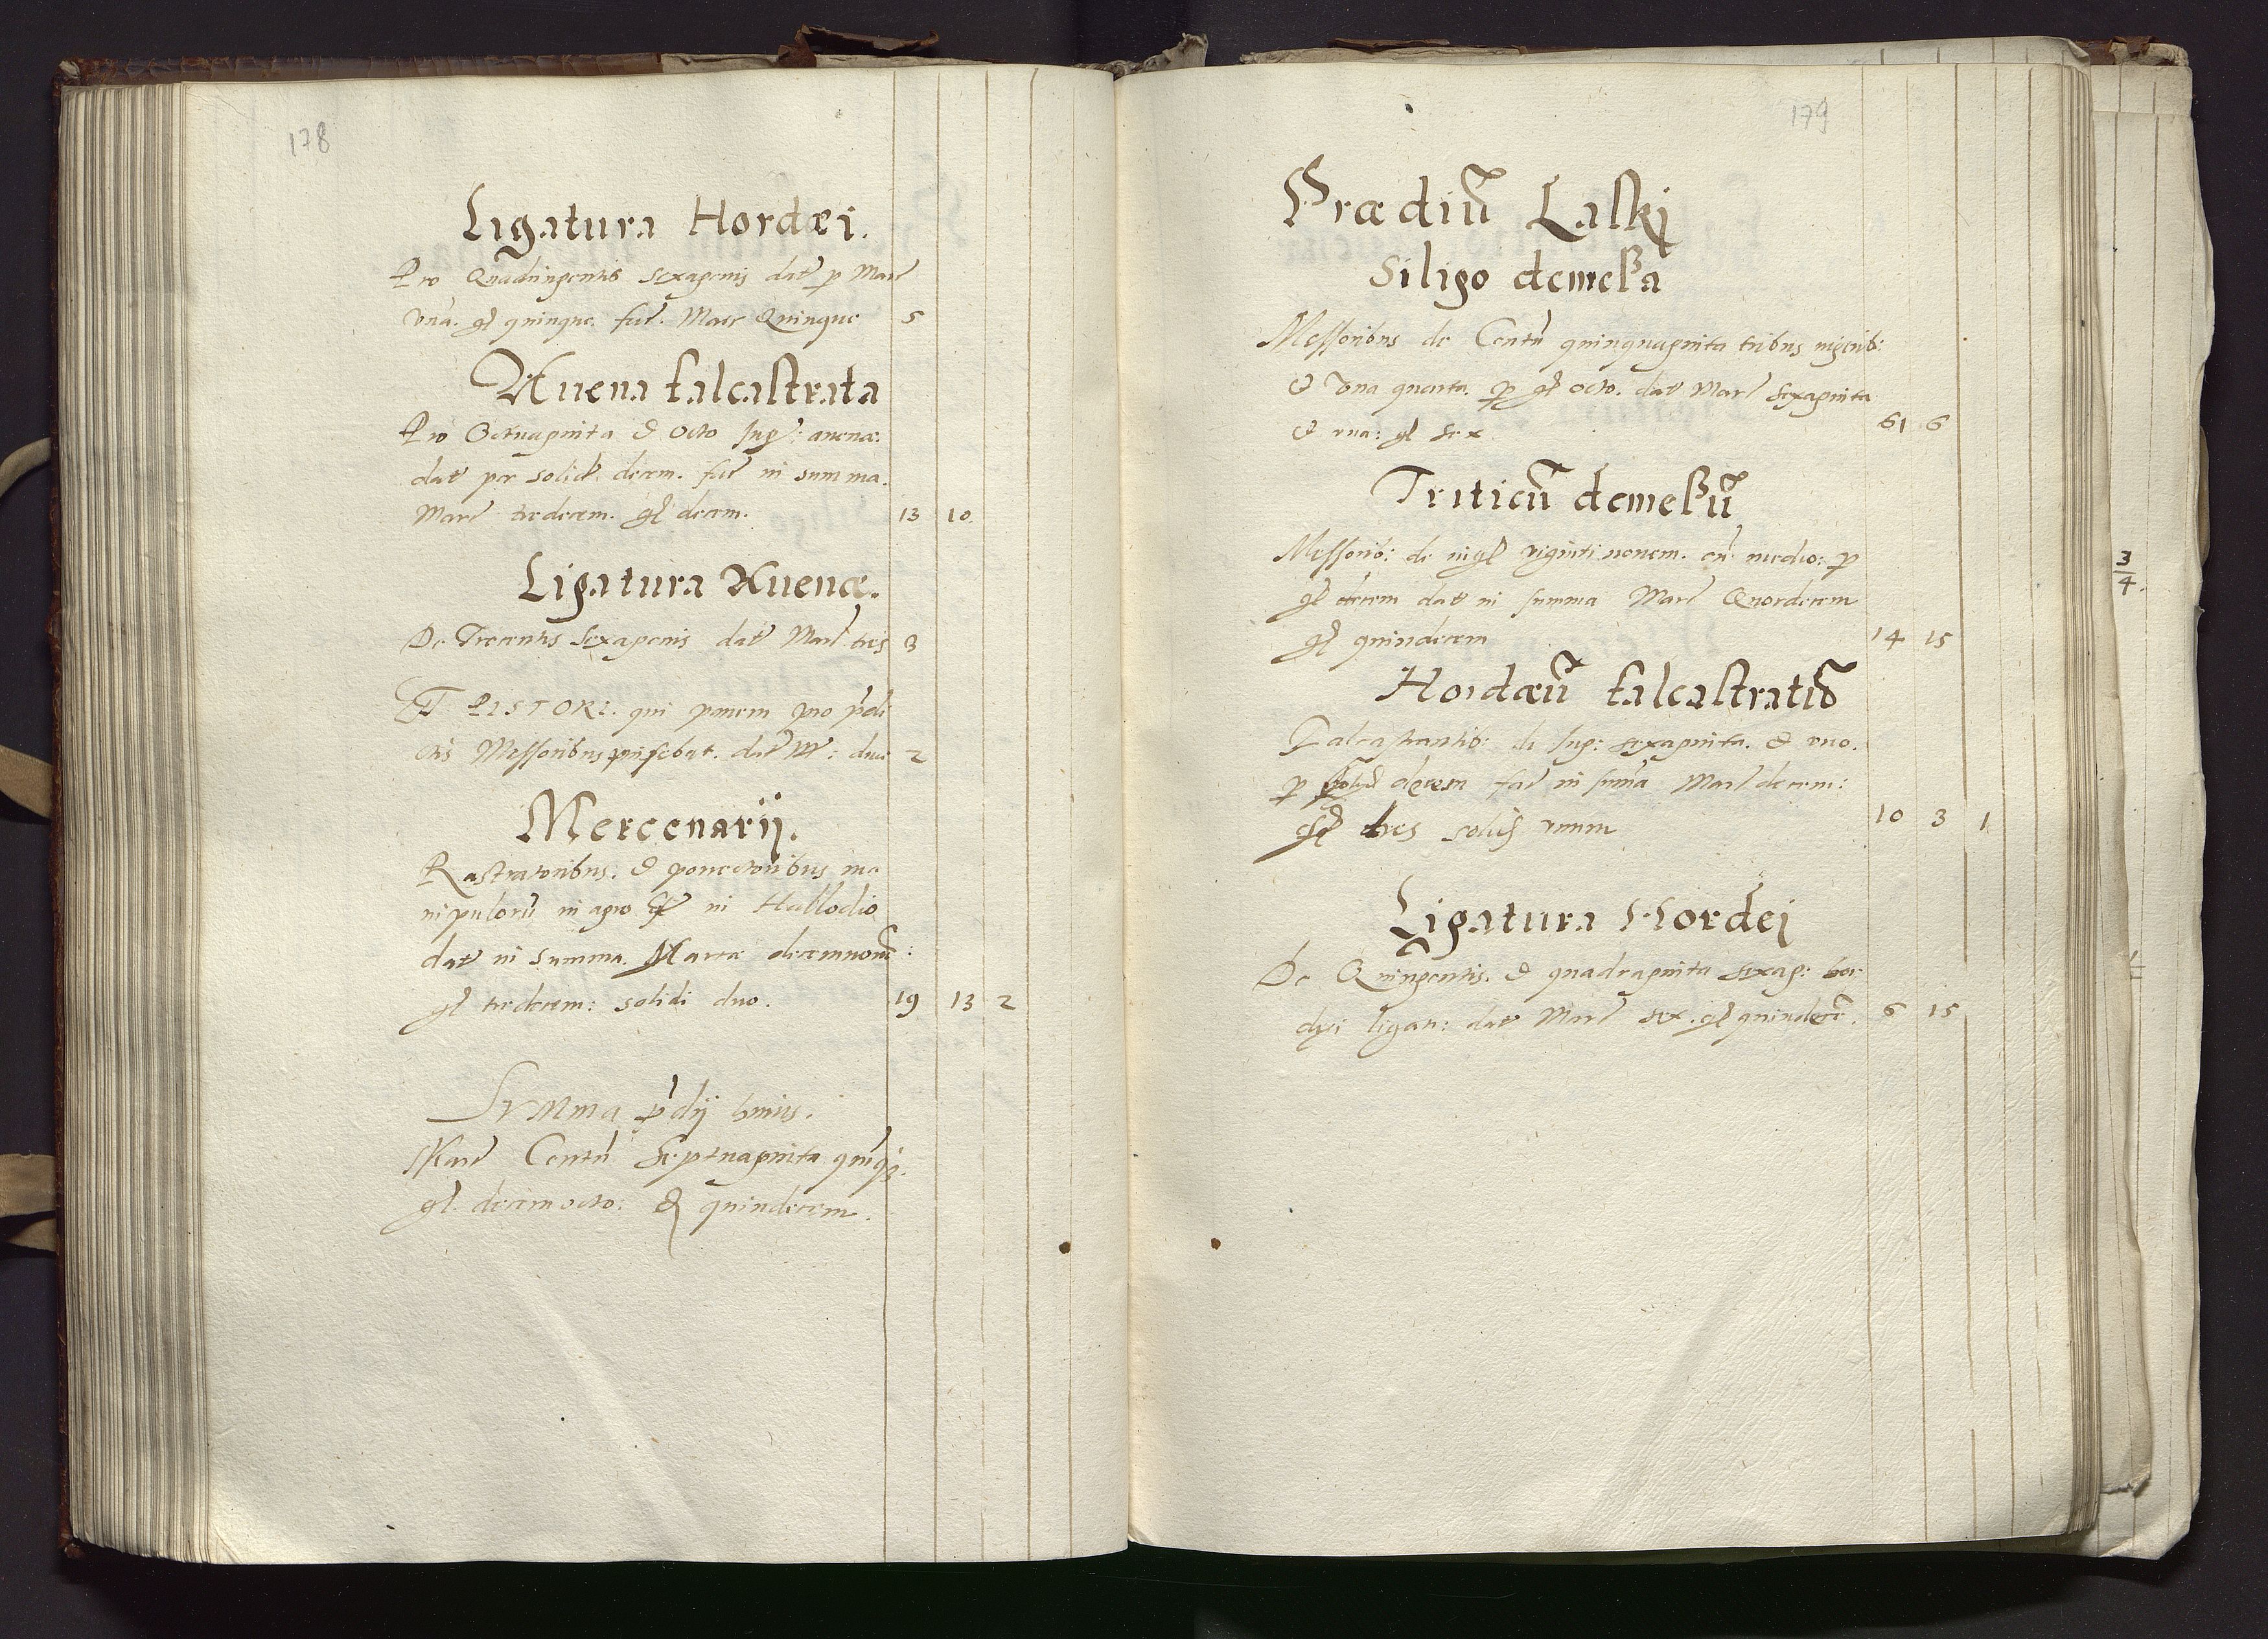 178
Ligatura Hordæi.
Pro Quadringentis sexagenis dat p Marc
vna. gl quinque. fac. Marc Quinque 5
Auena falcastrata
Pro Octuaginta & octo Iug: auenæ
dat per solid. decem. fac in summa.
Marc tredecem. gl decem. 13 10
Ligatura Auenæ.
De Trecentis sexagenis dat Marc tres 3
PISTORI. qui panem pro pdi
ctis Messoribus pinsebat. dat M: duas 2
Mercenarij.
Rastratoribus. & ponectoribus ma
nipulorū in agro & in Hallodio
dat in summa. Marcæ decemnoue:
gl tredecem: solidi duo. 19 13 2
Summa pdij huius.
Marc Centū Septuaginta quinq3.
gl. decem octo: & quindecem.
179
Prædiū Laskj
Siligo demeßa
Messoribus de Centū quinquaginta tribus iugerib:
& vna quarta. p gl octo. dat Marc Sexaginta
& vna: gl sex 61 6
Triticū demeßū
Messorib: de iugl viginti nouem. cū medio: p
gl decem dat in summa Marc Quordecem
gl quindecem 14 15
Hordæū falcastratū
Falcastrantib: de Iug: sexaginta. & vno.
p solid decem fac in suma Marc decem:
gl tres solid vnum 10 3 1
Ligatura Hordej
De Quingentis. & quadraginta sexag: hor
dei ligan: dat Marc sex. gl quindece. 6 15
3/4.